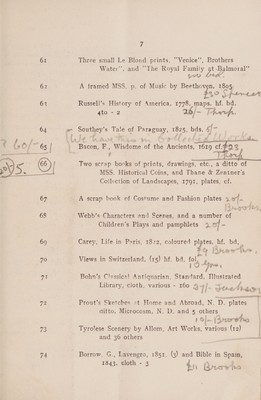 7
61 Three small Le Blond prints, "Venice", Brothers
Water", and "The Royal Family at Balmoral"
no bid.
62 A framed MSS. p. of Music by Beethoven, 1805.
£20 Spencer
63 Russell's History of America, 1778, maps. hf. bd.
4to - 2 26/- Thorp
64 Southey's Tale of Paraguay, 1825, bds. 5/-
We have this in Collected Works
? 60/- 65 Bacon, F., Wisdome of the Ancients, 1619 cf. £23
Thorp
66 Two scrap books of prints, drawings, etc., a ditto of
MSS. Historical Coins, and Thane & Zentner's
Collection of Landscapes, 1791, plates, cf.
67 A scrap book of Costume and Fashion plates 20/-
Brooks
68 Webb's Characters and Scenes, and a number of
Children's Plays and pamphlets 20/-
69 Carey, Life in Paris, 1822, coloured plates. hf. bd.
£9 Brooks.
70 Views in Switzerland, (15) hf. bd. fol.
13 gns.
71 Bohn's Classical Antiquarian, Standard, Illustrated
Library, cloth, various - 160 27/- Jackson
72 Prout's Sketches at Home and Abroad, N. D. plates
ditto, Microcosm, N. D. and 5 others
12/- Brooks
73 Tyrolese Scenery by Allom, Art Works, various (12)
and 36 others
74 Borrow, G., Lavengro, 1851, (3) and Bible in Spain,
1843, cloth - 3 £11 Brooks